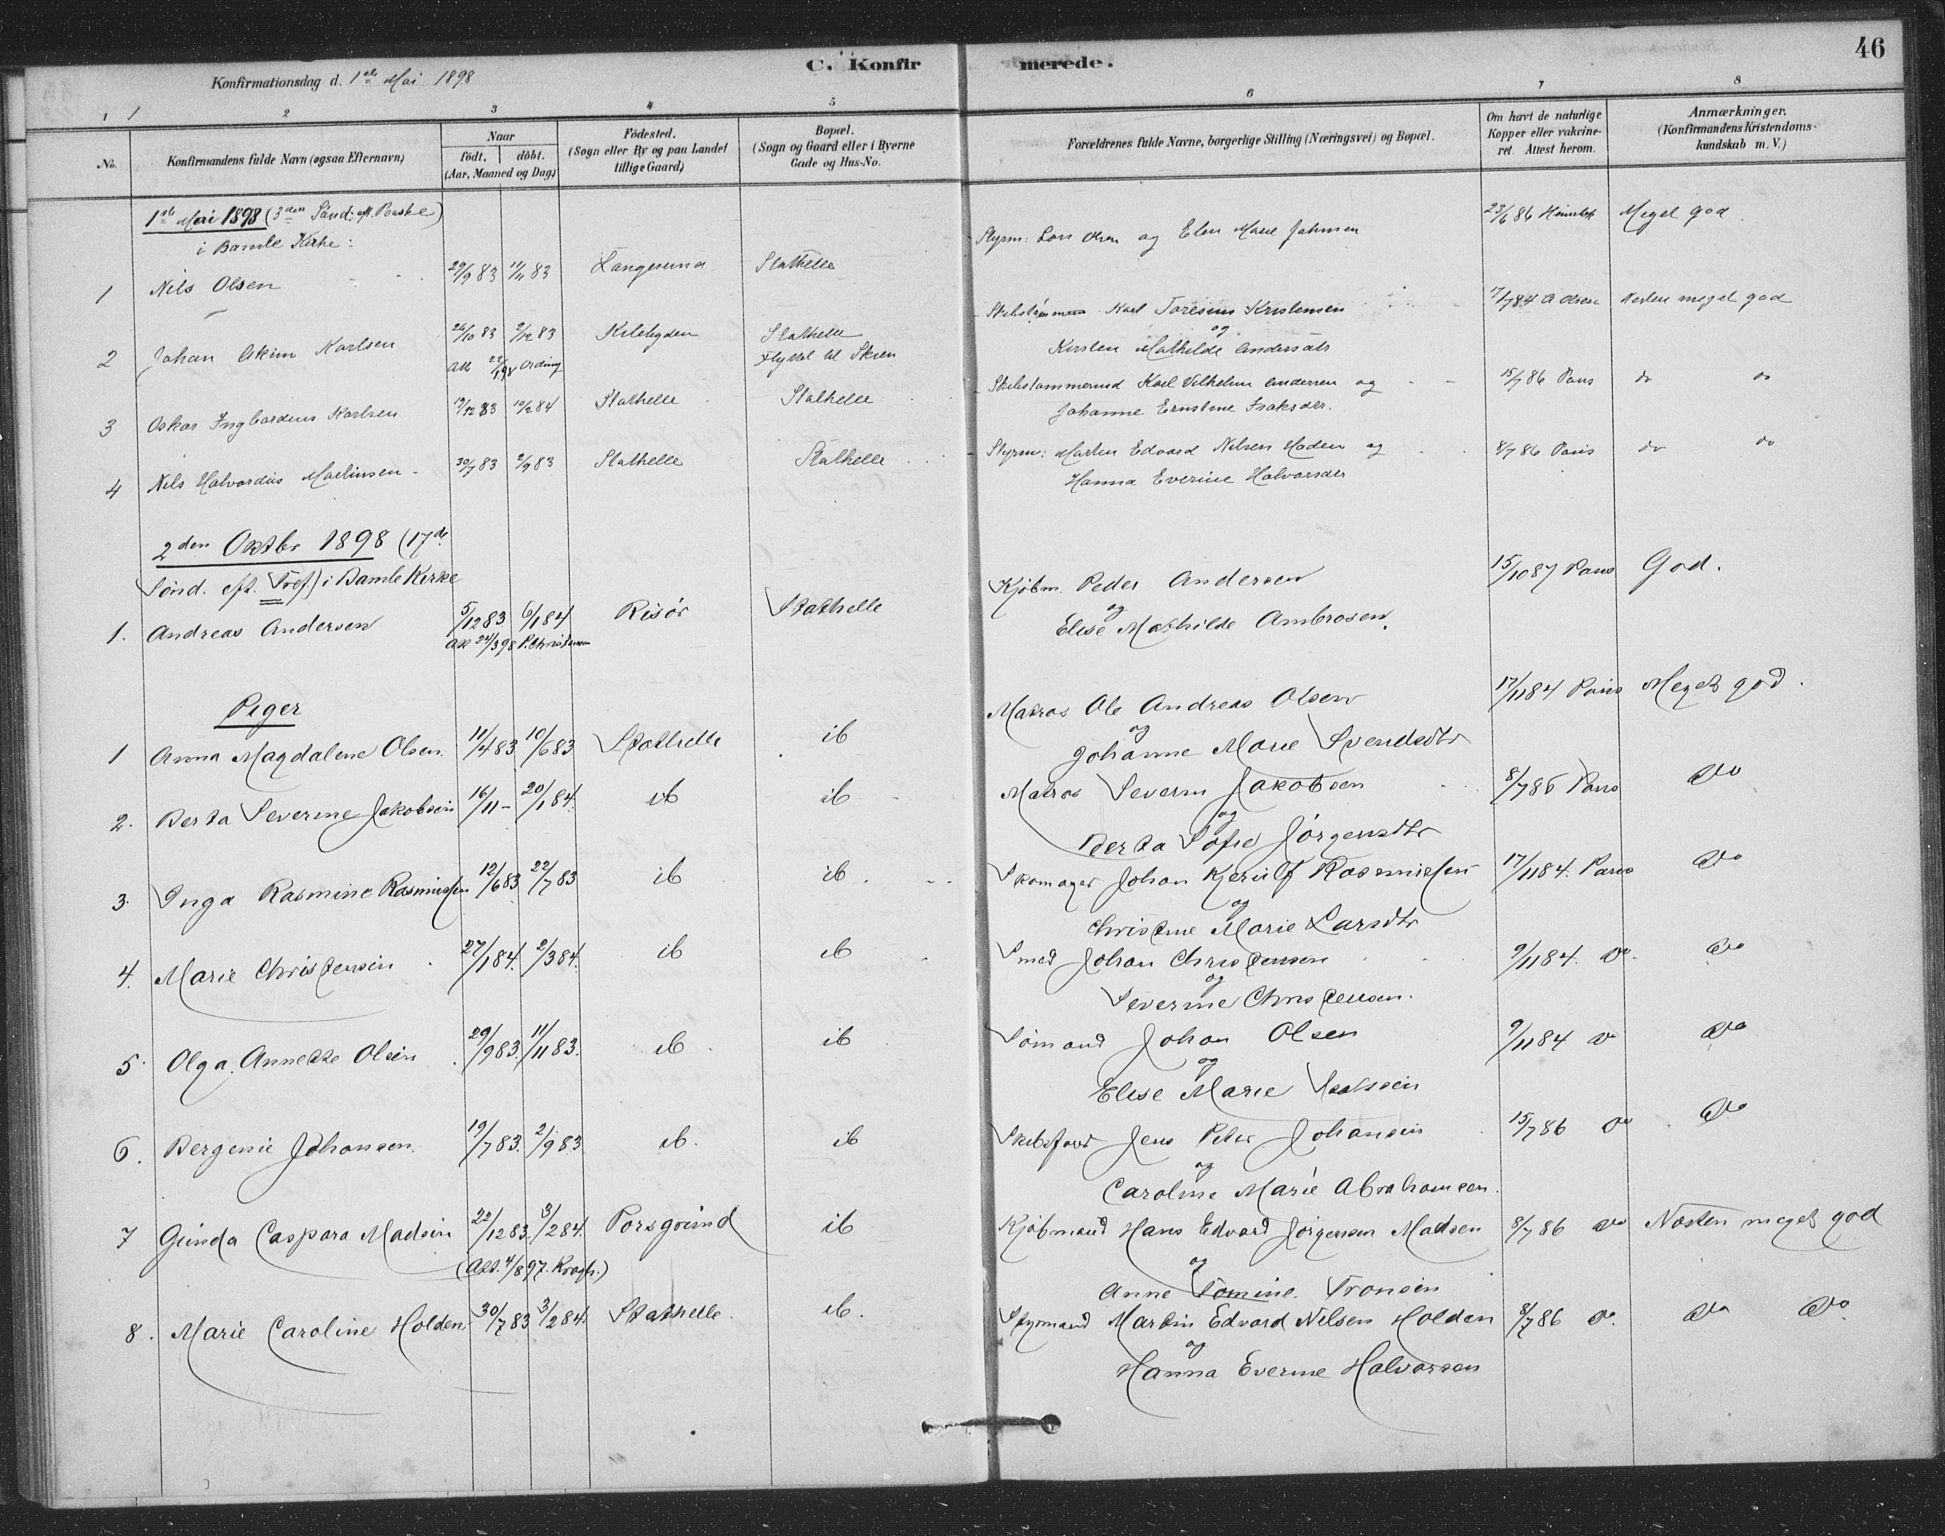 C. Konfirmerede. 46
Konfirmationsdag d. 1ste Mai 1898
1 2 3 4 5 6 7 8
No.
Konfirmandens fulde Navn (ogsaa Efternavn)
Naar
födt. döbt.
(Aar, Maaned og Dag)
Födested.
(Sogn eller By og paa Landet
tillige Gaard)
Bopæl.
(Sogn og Gaard eller i Byerne
Gade og Hus-No.
Forældrenes fulde Navne, borgerlige Stilling (Næringsvei) og Bopæl.
Om havt de naturlige
Kopper eller vakcine-
ret. Attest herom.
Anmærkninger.
(Konfirmandens Kristendoms-
kundskab m. V.)
1ste Mai 1898 (3den Sönd. eft. Paaske)
i Bamle Kirke:
1 Nils Olsen 29/9 83 11/11 83 Langesund Stathelle Styrm: Lars Olsen og Elen Marie 23/6 86 Meget god.
2 Johan Karlsen 26/10 83 2/12 83 Kilebygden Stathelle Karl Toresius Kristensen 17/7 84 Olsen Næsten meget god
og
Att 22/1 98 flyttet til Skien Kirsten Mathilde Andersdtr
3 Oskar Karlsen 19/12 83 10/2 84 Stathelle Stathelle Karl Vilhelm Andersen og 15/7 86 Paus do do
Johanne Ernstine Isaksdr.
4 Nils Halvardius Martinsen 30/7 83 2/9 83 Stathelle Stathelle Styrm: Martin Edvard Nilsen og 8/7 86 Paus do do
Hanna Everine Halvorsdr
2den Oktbr 1898 (17de
Sønd. eft. Tref.) i Bamle Kirke
1. Andreas Andersen 5/12 83 6/1 84 Risör Stathelle Kjöbm. Peder Andersen 15/10 87 Paus God.
og
Att 24/3 98 P. Christensen Elise Mathilde Ambrosen.
Piger
1 Anna Magdalene Olsen. 11/4 83 10/6 83 Stathelle ib Matros Ole Andreas Olsen 17/11 84 Paus Meget god.
og
Johanne Marie Svendsdtr
2. Berta Severine Jakobsen 16/11 - 20/1 84. ib ib Matros Severin Jakobsen 8/7 86 Paus Do
og
Berta Sofie Jörgensdtr
3. Inga Rasmine Rasmussen 12/6 83 22/7 83 ib ib. Skomager Johan Kjerulf Rasmussen 17/11 84. Paus Do
og
Christine Marie Larsdtr
4. Marie Christensen 27/1 84. 2/3 84. ib ib Smed Johan Christensen 9/11 84. Do. Do
og
Severine Christensen.
5. Olga Annette Olsen 29/9 83. 11/11 83. ib. ib Sömand Johan Olsen 9/11 84 Do Do
og
Elise Marie
6. Bergenie Johansen. 19/7 83. 2/9 83 ib. ib Skibsförer Jens Peter Johansen 15/7 86 Do Do
og
Caroline Marie Abrahamsen.
7 Gunda Caspara Madsen 22/12 83. 3/2 84. Porsgrund ib Kjöbmand Hans Edvard Jörgensen Madsen 8/7 86 Do Næsten meget god
og
(Att. 4/8 97. Kragh.) Anne Tomine Tronsen
8. Marie Caroline Holden 30/7 83 3/2 84. Stathelle. ib. Styrmand Martin Edvard Nilsen Holden 8/7 86 Do. Do Do.
og
Hanna Everine Halvorsen